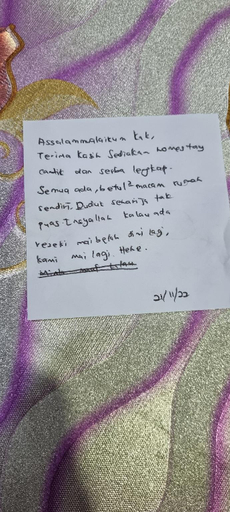 Assalammualaikum kak,
Terima kasih sediakan homestay
cantik dan serba lengkap.
Semua ada, betul2 macam rumah
sendiri. Duduk sehari je tak
puas. Insyallah kalau ada
rezeki mai belah sini lagi,
kami mai lagi. Hehe.
21/11/22